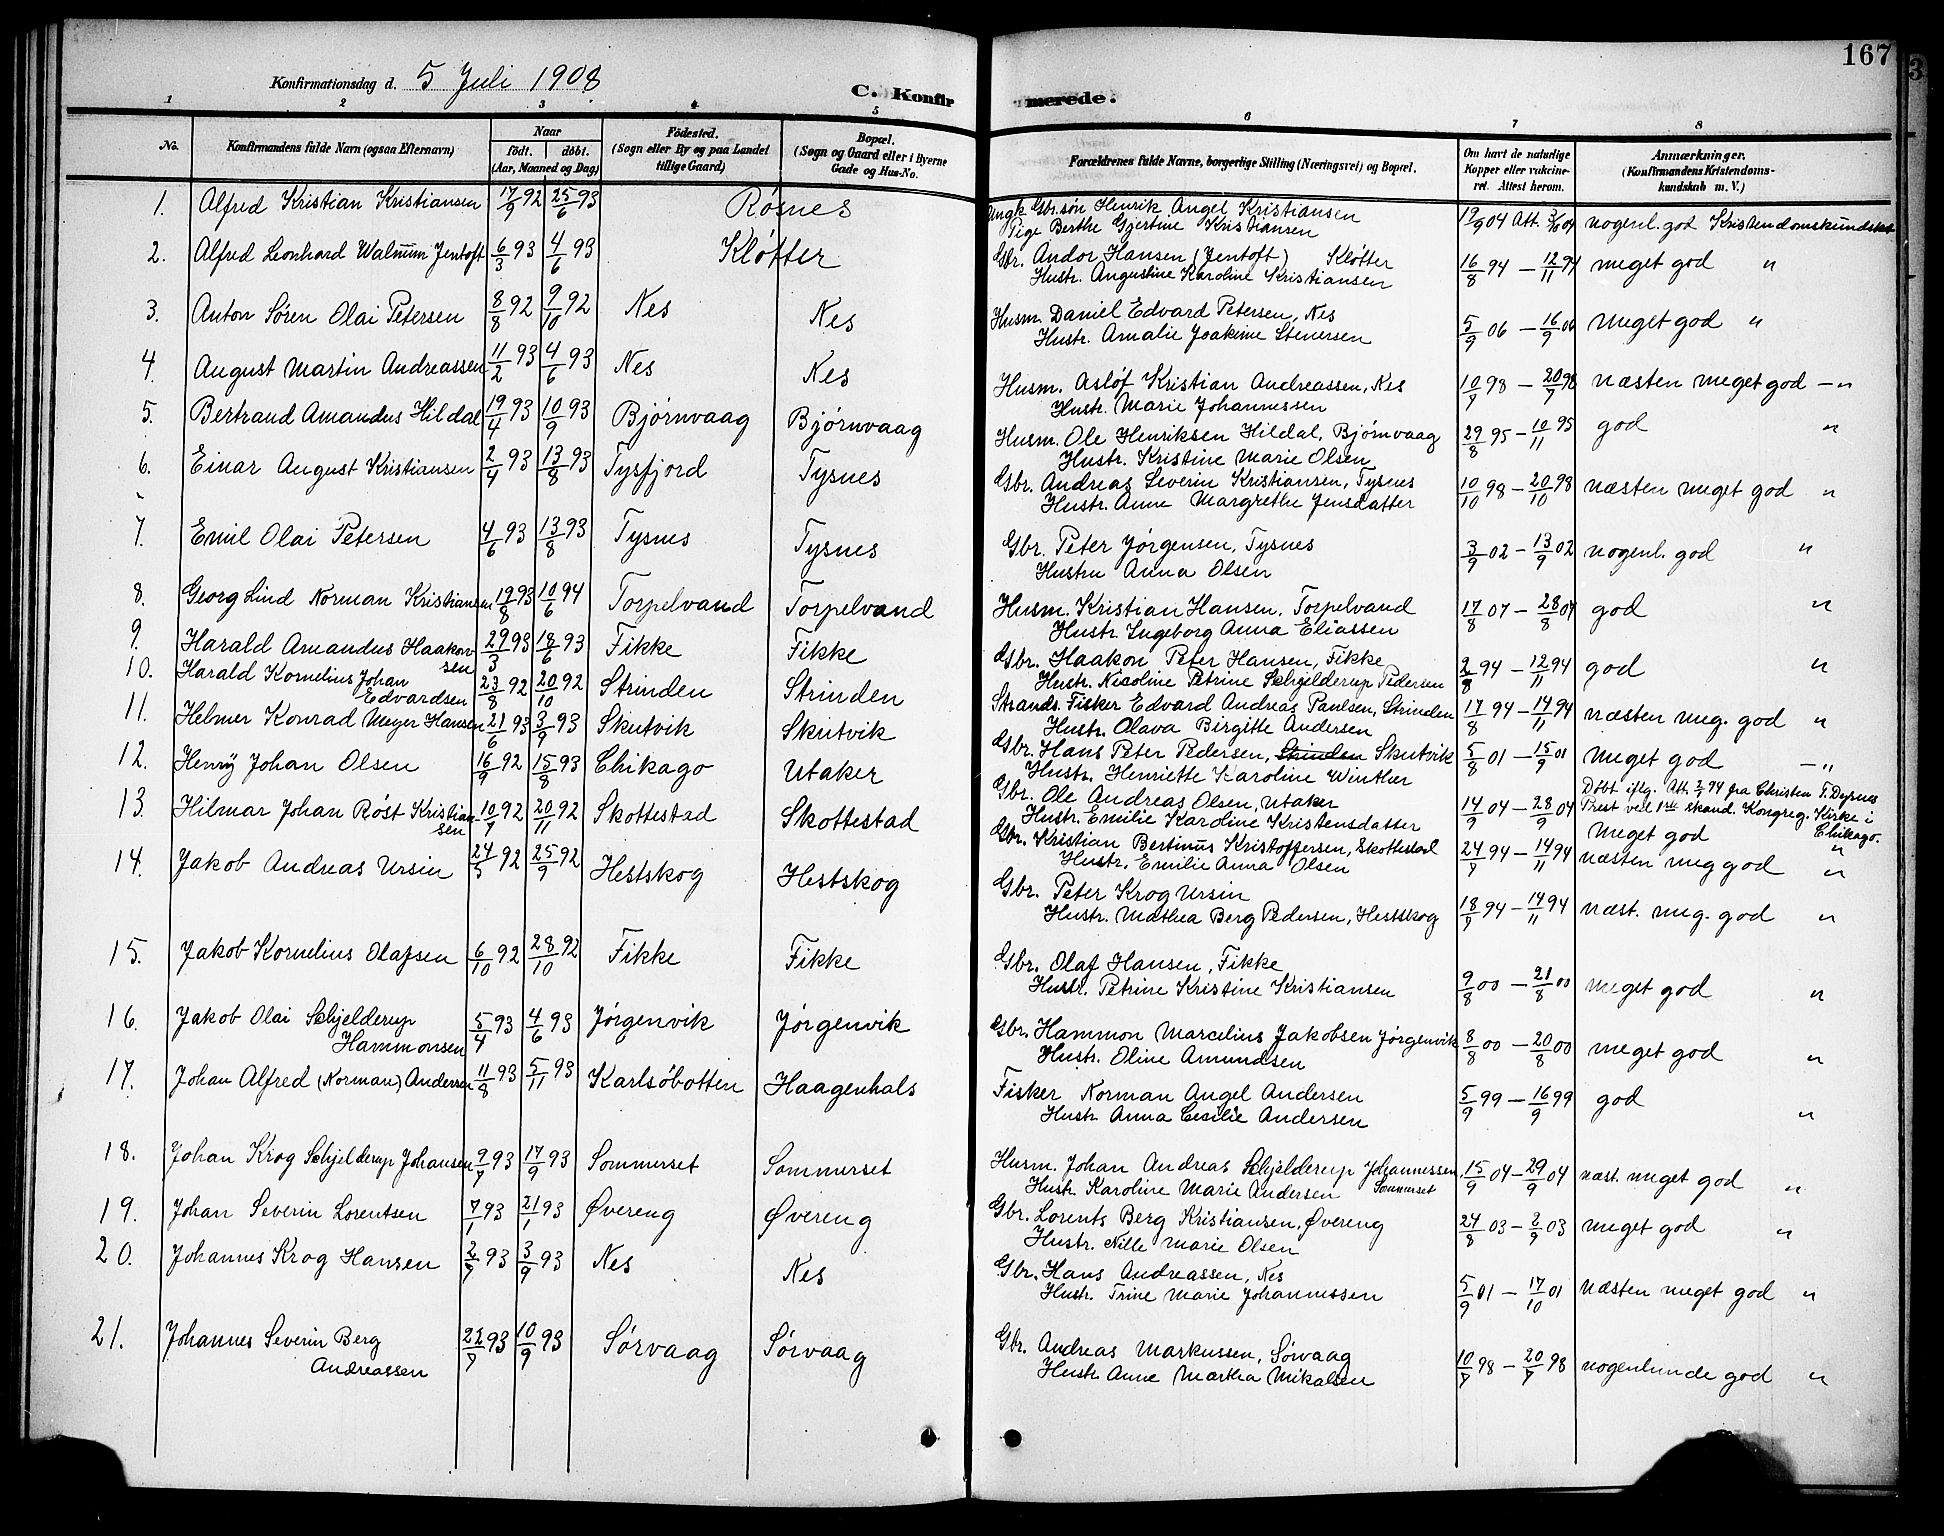 167
Konfirmationsdag d. 5 Juli 1908
C. Konfirmerede.
1 2 3 4 5 6 7 8
No. Konfirmandens fulde Navn (ogsaa Efternavn) Naar födt. döbt. (Aar, Maaned og Dag) Födested. (Sogn eller By og paa Landet tillige Gaard) Bopæl. (Sogn og Gaard eller i Byerne Gade og Hus-No. Forældrenes fulde Navne, borgerlige Stilling (Næringsvei) og Bopæl. Om havt de naturlige Kopper eller vakcineret. Attest herom. Anmærkninger. (Konfirmandens Kristendomskundskab m. V.)
1. Alfred Kristian Kristiansen 17/9 92 25/6 93 Røsnes Ungk. Gbr.søn Henrik Angel Kristiansen 19/9 04 Att. nogenl. god Kristendomskundskab
Pige Berthe Gjertine Kristiansen
2. Alfred Leonhard Walnum Jentoft 6/3 93 4/6 93 Kløtter Gbr. Andor Hansen (Jentoft) Kløtter 16/8 94 – 12/11 94 meget god "
Hustr. Augustine Karoline Kristiansen
3. Anton Søren Olai Petersen 8/8 92 9/10 92 Nes Nes Husm. Daniel Edvard Petersen, Nes 5/9 06 – 16/9 06 meget god "
Hustr. Amalie Joakime Stenersen
4. August Martin Andreassen 11/2 93 4/6 93 Nes Nes Husm. Asløf Kristian Andreassen, Nes 10/7 98 – 20/7 98 næsten meget god – "
Hustr. Marie Johannessen
5. Bertrand Amandus Hildal 19/4 93 10/9 93 Bjørnvaag Bjørnvaag Husm. Ole Henriksen Hildal, Bjørnvaag 29/8 95 – 10/11 95 god "
Hustr. Kristine Marie Olsen
6. Einar August Kristiansen 2/4 93 13/8 93 Tysfjord Tysnes Gbr. Andreas Severin Kristiansen, Tysnes 10/10 98 – 20/10 98 næsten meget god "
Hustr. Anne Margrethe Jensdatter
7. Emil Olai Petersen 4/6 93 13/8 93 Tysnes Tysnes Gbr. Peter Jørgensen, Tysnes 3/9 02 – 13/9 02 nogenl. god "
Hustru Anna Olsen
8. Georg Lind Norman Kristiansen 19/8 93 10/6 94 Torpelvand Torpelvand Husm. Kristian Hansen, Torpelvand 17/8 07 – 28/8 07 god "
Hustr. Ingeborg Anna Eliassen
9. Harald Amandus Haakonsen 29/3 93 18/6 93 Fikke Fikke Gbr. Haakon Peter Hansen, Fikke 2/8 94 – 12/11 94 god "
Hustr. Nicoline Petrine Schjelderup Pedersen
10. Harald Kornelius Johan Edvardsen 23/8 92 20/10 92 Strinden Strinden Strands. Fisker Edvard Andreas Paulsen, Strinden 17/8 94 – 14/11 94 næsten meg. god "
Hustr. Olava Birgitte Andersen
11. Helmer Konrad Meyer Hansen 21/6 93 3/9 93 Skutvik Skutvik Gbr. Hans Peter Pedersen, Strinden Skutvik 5/8 01 – 15/9 01 meget god – "
Hustr. Henriette Karoline Winther
12. Henry Johan Olsen 16/9 92 15/8 93 Chikago Utaker Gbr. Ole Andreas Olsen, Utaker 14/9 04 – 28/9 04 Døbt iflg. Att. 2/7 94 fra Christen T. Dyrnes
Prest ved 1ste skand. Kongreg. Kirke i
Chikago.
Hustr. Emilie Karoline Kristensdatter meget god "
13. Hilmar Johan Røst Kristiansen 10/7 92 20/11 92 Skottestad Skottestad Gbr. Kristian Bertinus Kristoffersen, Skottestad 24/7 94 – 14/11 94 næsten meg god "
Hustr. Emilie Anna Olsen
14. Jakob Andreas Ursin 24/5 92 25/9 92 Hestskog Hestskog Gbr. Peter Krog Ursin 18/7 94 – 14/11 94 næst. meg. god "
Hustr. Mathea Berg Pedersen, Hestskog
15. Jakob Kornelius Olafsen 6/10 92 28/10 92 Fikke Fikke Gbr. Olaf Hansen, Fikke 9/8 00 – 21/8 00 meget god "
Hustr. Petrine Kristine Kristiansen
16. Jakob Olai Schjelderup Hammonsen 5/4 93 4/6 93 Jørgenvik Jørgenvik Gbr. Hammon Marcelius Jakobsen Jørgenvik 8/8 00 – 20/8 00 meget god "
Hustr. Oline Amundsen
17. Johan Alfred (Norman) Andersen 11/8 93 5/11 93 Karlsøbotten Haagenhals Fisker Norman Angel Andersen 5/9 99 – 16/9 99 god "
Hustr Anna Cecilie Andersen
18. Johan Krog Schjelderup Johansen 9/7 93 17/9 93 Sommerset Sommerset Husm. Johan Andreas Schjelderup Johannessen, Sommerset 15/9 04 – 29/9 04 næst. meget god "
Hustr. Karoline Marie Andersen
19. Johan Severin Lorentsen 7/1 93 21/1 93 Øvereng Øvereng Gbr. Lorents Berg Kristiansen, Øvereng 24/8 03 – 2/9 03 meget god "
Hustr. Nille Marie Olsen
20. Johannes Krog Hansen 2/7 93 3/9 93 Nes Nes Gbr. Hans Andreassen, Nes 5/9 01 – 17/10 01 næsten meget god "
Hustr. Trine Marie Johannessen
21. Johannes Severin Berg Andreassen 22/7 93 10/9 93 Sørvaag Sørvaag Gbr. Andreas Markussen, Sørvaag 10/7 98 – 20/7 98 nogenlunde god "
Hustr Anne Martha Mikalsen